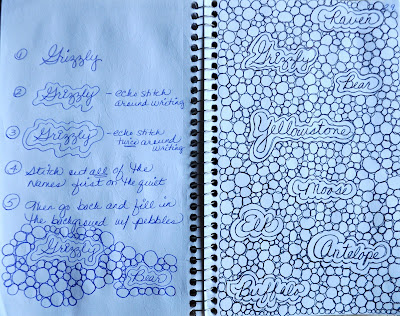 ① Grizzly
② Grizzly - echo stitch
around writing
③ Grizzly - echo stitch
twice around
writing
④ Stitch out all of the
names first on the quilt
⑤ Then go back and fill in
the background w/ pebbles
Grizzly
Bear
Raven
Grizzly
Bear
Yellowstone
Moose
Antelope
Buffalo